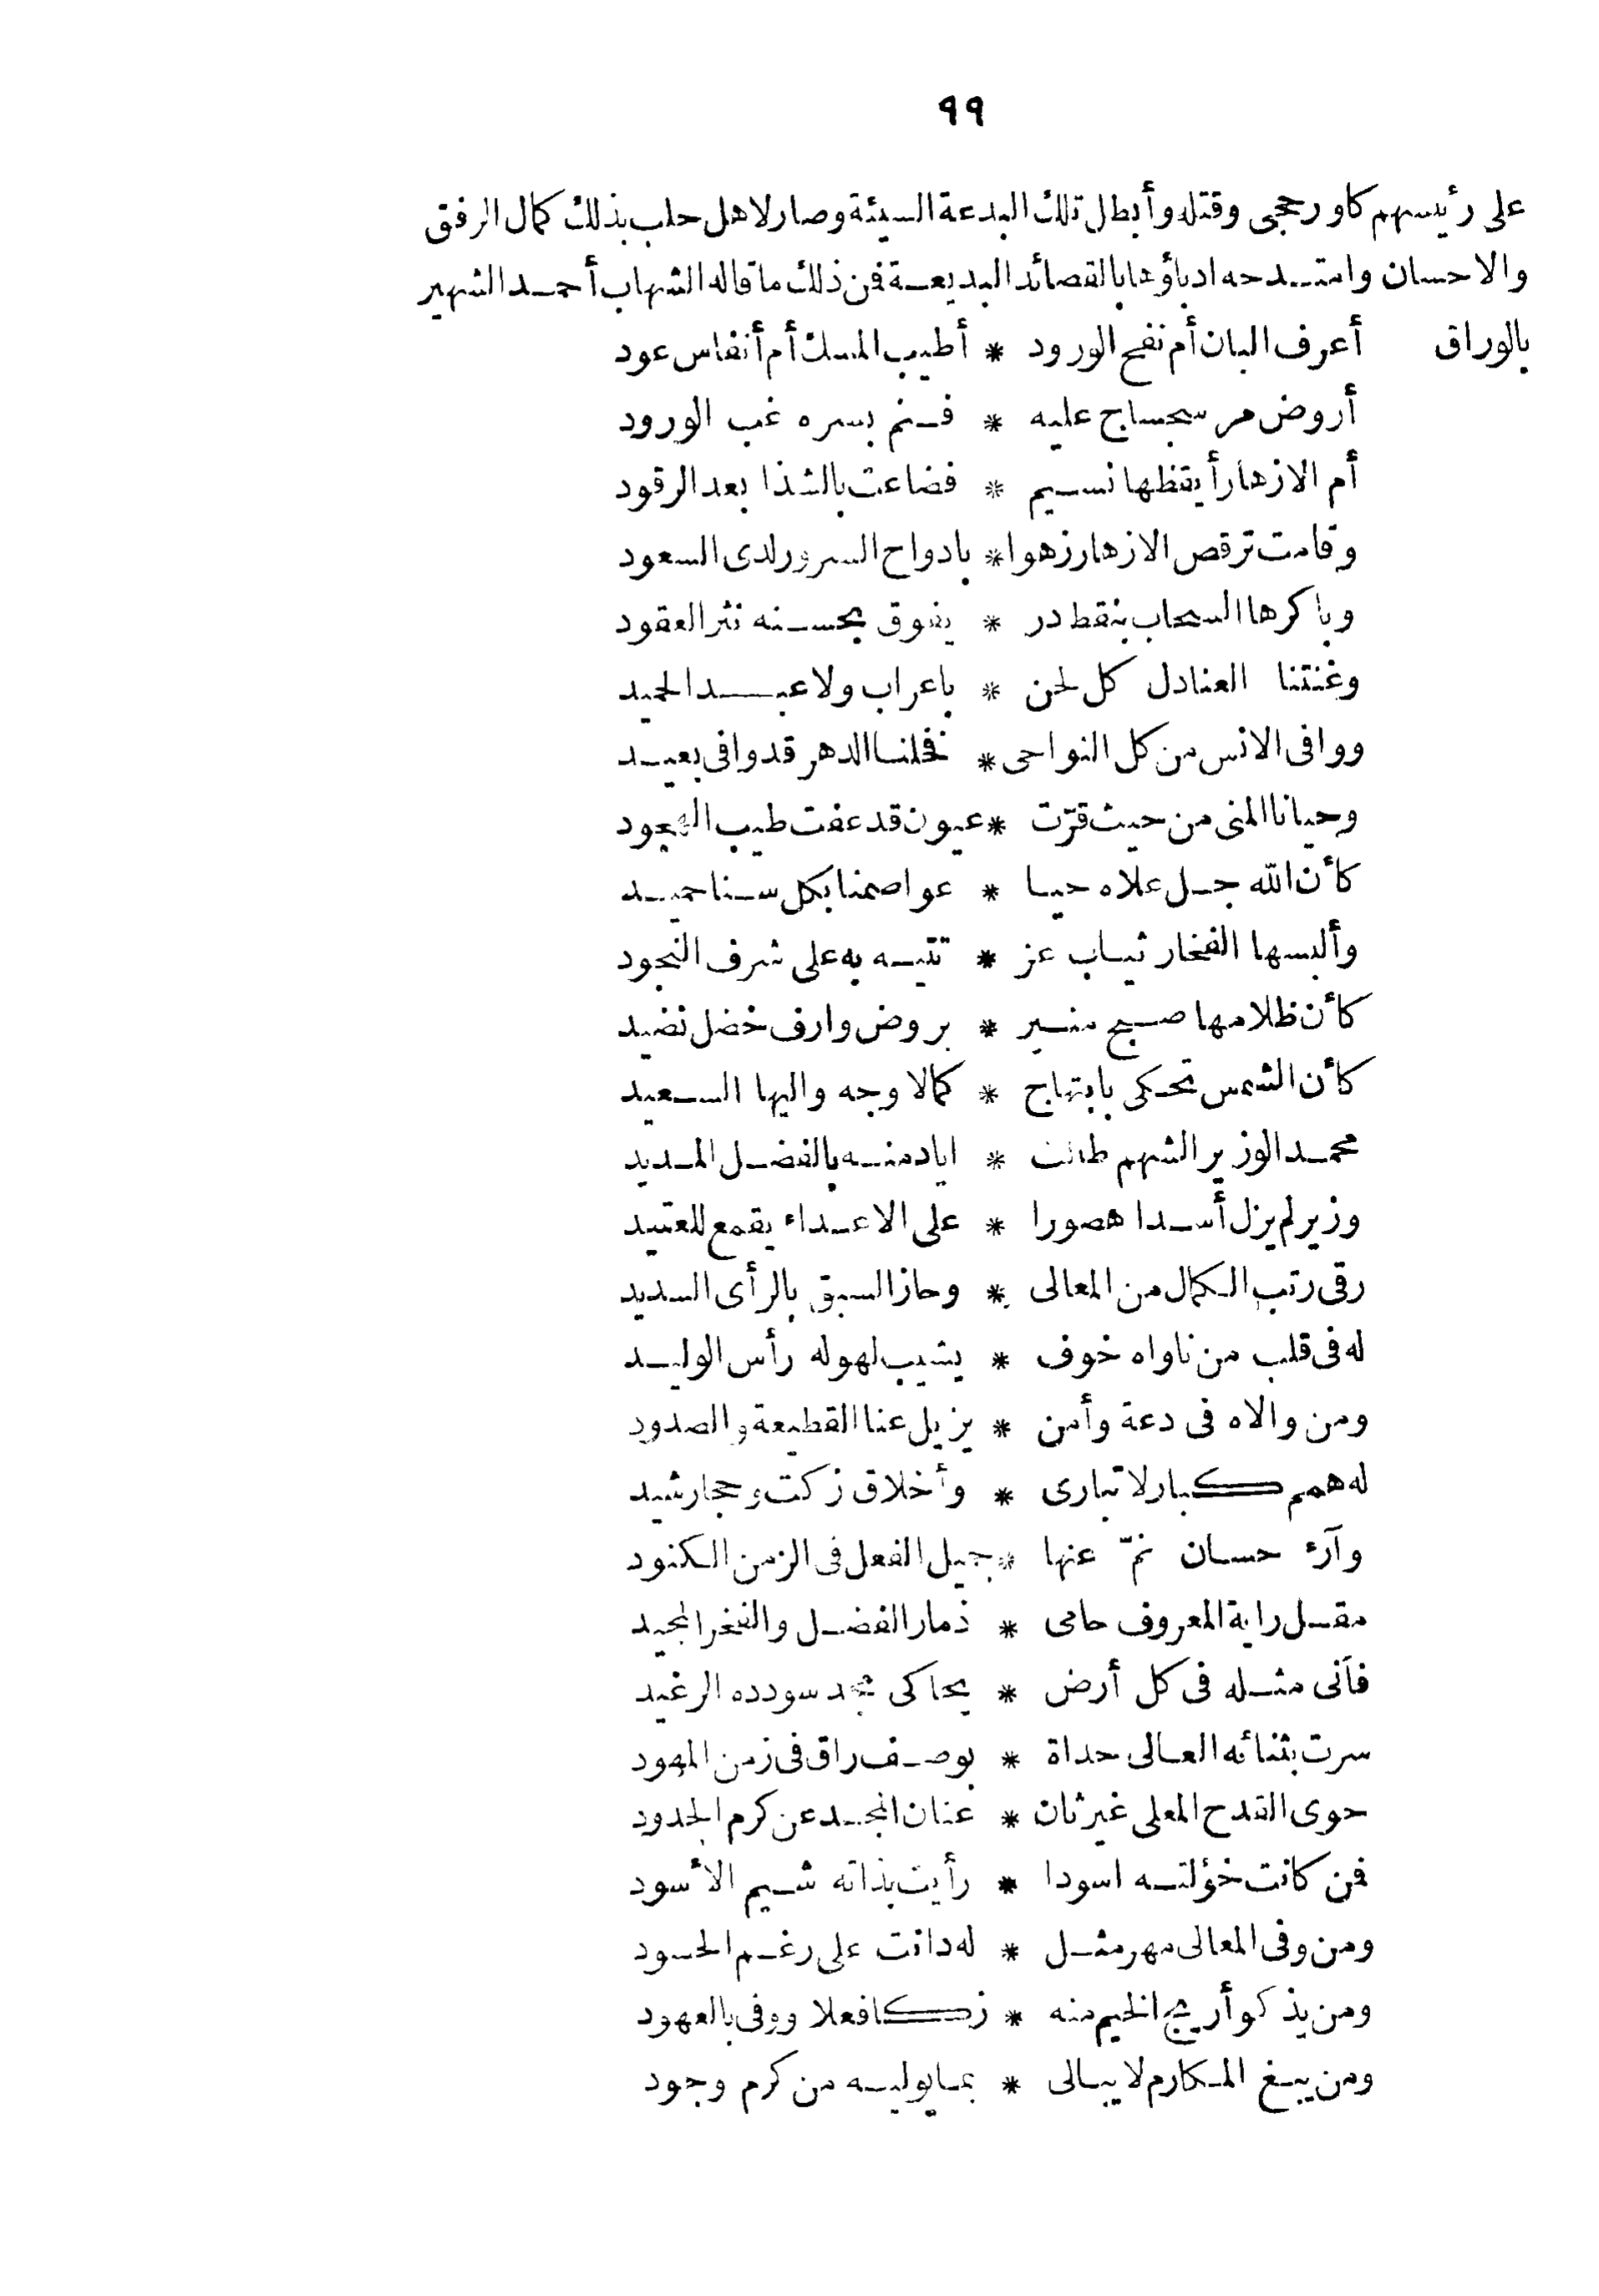 ٩٩
على رئيسهم كاورحجى وقتله وأبطل تلك البدعة السيئة وصار لاهل حلب بذلك كمال الرفق
والاحسان وامتدحه ادباؤها بالقصائد البديعة فمن ذلك ما قاله الشهاب أحمد الشهير
بالوراق أعرف البان أم نفح الورود * أطيب المسك أم أنفاس عود
أروض مر سجساج عليه * فنم بسره غب الورود
أم الازهار أيقظها نسيم * فضاعت بالشذا بعد الرقود
وقامت ترقص الازهار زهوا * بادواح السرور لدى السعود
وباكرها السحاب بنقط در * يفوق بحسنه نثر العقود
وغنتنا العنادل كل لحن * باعراب ولا عبد الحميد
ووافى الانس من كل النواحى * فخلنا الدهر قد وافى بعيد
وحيانا المنى من حيث قرّت * عيون قد عفت طيب الهجود
كأن الله جل علاه حيا * عواصمنا بكل سنا حميد
وألبسها الفخار ثياب عز * تتيه به على شرف النجود
كأن ظلامها صبح منير * بروض وارف خضل نضيد
كأن الشمس تحكى بابتهاج * كمالا وجه واليها السعيد
محمد الوزير الشهم طالت * اياد منه بالفضل المديد
وزير لم يزل أسدا هصورا * على الاعداء يقمع للعتيد
رقى رتب الكمال من المعالى * وحاز السبق بالرأى السديد
له فى قلب من ناواه خوف * يشيب لهوله رأس الوليد
ومن والاه فى دعة وأمن * يزيل عنا القطيعة والصدود
له همم كبار لا تبارى * وأخلاق زكت وحجا رشيد
وآرء حسان نمّ عنها * جميل الفعل فى الزمن الكنود
مقل راية المعروف حامى * ذمار الفضل والفخر المجيد
فآنى مثله فى كل أرض * يحاكى مجد سودده الرغيد
سرت بثنائه العالى حداة * بوصف راق فى زمن المهود
حوى القدح المعلى غير ثان * عنان المجد عن كرم الجدود
فمن كانت خؤلته اسودا * رأيت بذاته شيم الأسود
ومن وفى المعالى مهر مثل * له دانت على رغم الحسود
ومن يذكو أريج الخيم منه * زكا فعلا ووفى بالعهود
ومن يبغ المكارم لا يبالى * بما يوليه من كرم وجود